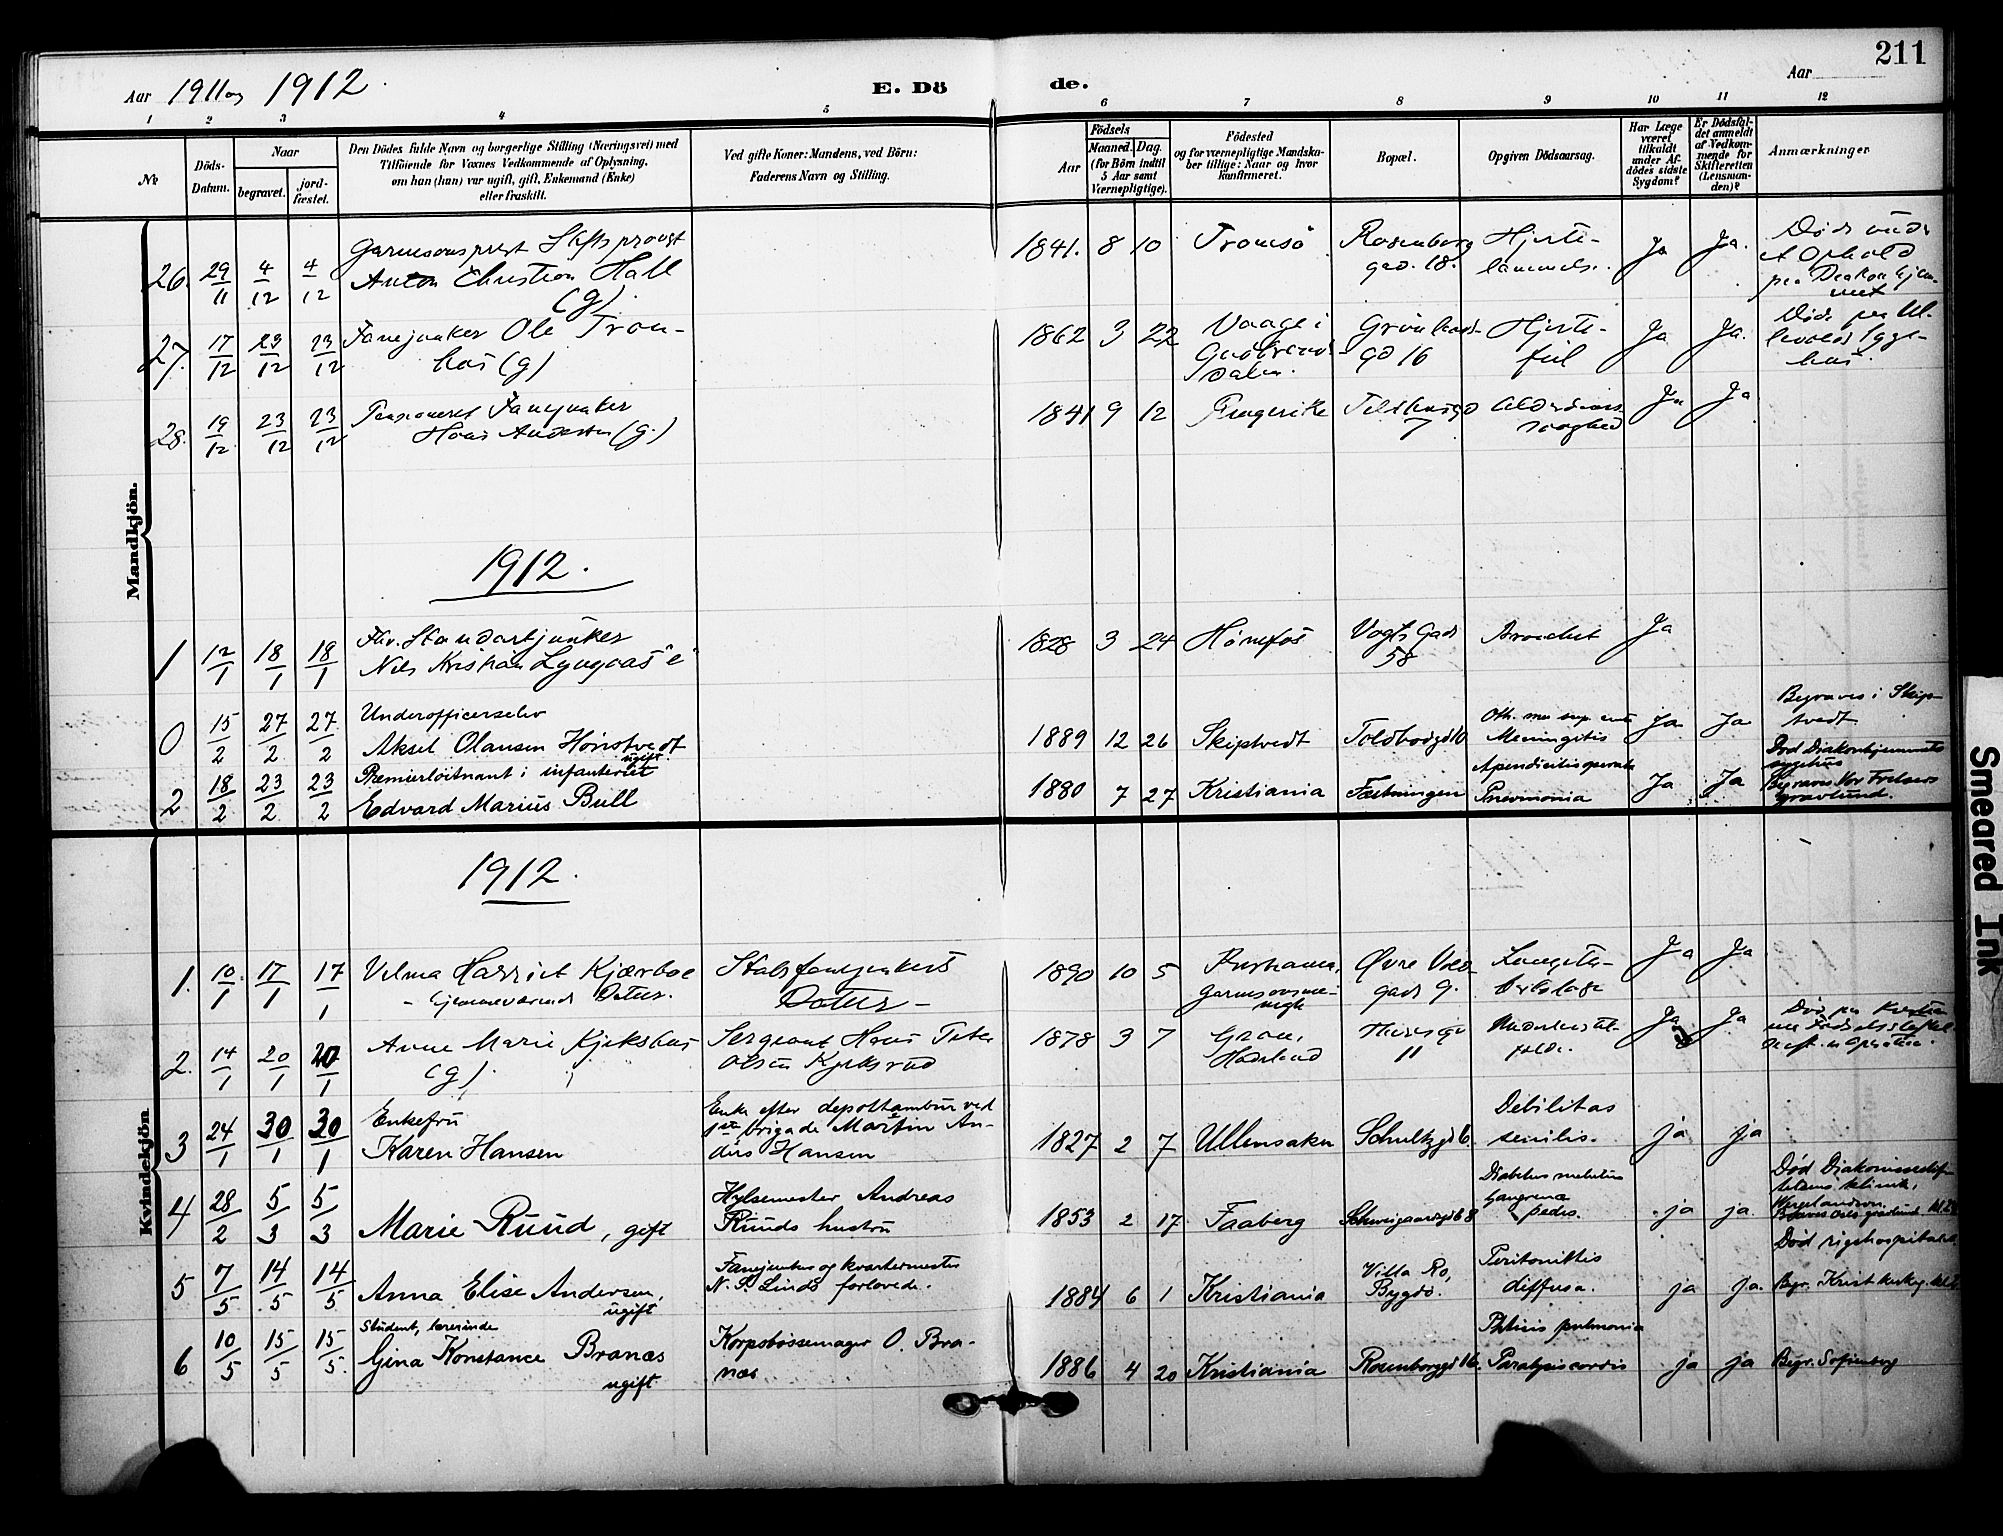 211
Aar 1911 og 1912. E. Dö de. Aar
1 2 3 4 5 6 7 8 9 10 11 12
No
Döds-Datum.
Naar
begravet.
jord-fæstet.
Den Dödes fulde Navn og borgerlige Stilling (Næringsvei) med
Tilföiende for Voxnes Vedkommende af Oplysning,
om han (hun) var ugift, gift, Enkemand (Enke)
eller fraskilt.
Ved gifte Koner: Mandens, ved Börn:
Faderens Navn og Stilling.
Födsels
Aar
Maaned. Dag.
(for Börn indtil
5 Aar samt
Værnepligtige).
Födested
og for værnepligtige Mandska-
ber tillige: Naar og hvor
konfirmeret.
Bopæl.
Opgiven Dödsaarsag.
Har Læge
været
tilkaldt
under Af-
dödes sidste
Sygdom?
Er Dödsfal-
det anmeldt
af Vedkom-
mende for
Skifteretten
(Lensman-
den)?
Anmærkninger
Mandkjön.
26. 29/11 4/12 4/12
Anton Christian Hall
(g).
1841. 8 10 Tromsö Rosenborg
gad. 18. Hjerte-
lammelse. Ja Ja.
Död under
et Ophold
paa Diakonhjem-
met
27. 17/12 23/12 23/12 Fanejunker Ole Tron-
hus (g)
1862 3 22 Vaage i
Gudbrands-
dalen.
gd 16 Hjerte-
feil Ja Ja.
Död paa Ul-
levold syge-
hus.
28. 19/12 23/12 23/12 Pensioneret Fanejunker
Hans Andersen (g.)
1841 9 12 Ringerike
7 Alderdoms-
svaghed Ja Ja
1912.
1 12/1 18/1 18/1 Fhv. Standartjunker
Nils Kristian Lyngaas "e"
1828 3 24 Hönefos Vogts Gade
58 Ja
0 15/2 27/2 27/2 Underofficerselev
Aksel Olausen Hönstvedt
ugift.
1889 12 26 Skiptvedt Toldbodgd 10
Meningitis Ja Ja
Begraves i Skip-
tvedt
2 18/2 23/2 23/2 Premierløitnant i infanteriet
Edvard Marius Bull
1880 7 27 Kristiania Fæstningen
Apendicitis operata
Pneumonia Ja Ja
Död Diakonhjemmets
sygehus
Begraves Vor Frelsers
gravlund.
Kvindekjön
1912.
1. 10/1 17/1 17/1 Vilma Harriet Kjærboe
- hjemmeværende Datter.
Stabsfanejunkers
Datter -
1890 10 5
Garnisonsme-
nigh Øvre Vold
gade 9. Ja Ja
2. 14/1 20/1 20/1 Anne Marie
(g)
Sergeant Hans Peter
Olsen
1878 3 7 Gran,
Hadeland
11 Ja Ja
3 24/1 30/1 30/1 Enkefru
Karen Hansen
Enke efter depottambur ved
1ste brigade Martin An-
ders Hansen
1827 2 7 Ullensaker Schultzgd 6. Debilitas
senilis. ja ja
4 28/2 5/3 5/3 Marie Ruud, gift
Hylsemester Andreas
Ruuds hustru
1853 2 17 Faaberg Schweigaardsgd 68
Diabetes melitus
Gangrena
pedis. ja ja.
5 7/5 14/5 14/5 Anna Elise Andersen,
ugift
Fanejunker og kvartermester
N. P. Linds forlovede.
1884 6 1 Kristiania Villa Ro,
Bygdö. Peritonittis
diffusa. ja ja.
Död rigshospitalet.
6 10/5 15/5 15/5 Student, lærerinde
Gina Konstance Branæs
ugift
Korpsbøssemager O. Bra-
næs
1886 4 20 Kristiania Rosenborggd 16. Phtisis pulmonia
Paralysis cordis ja ja Begr. Sofienberg
Smeared Ink